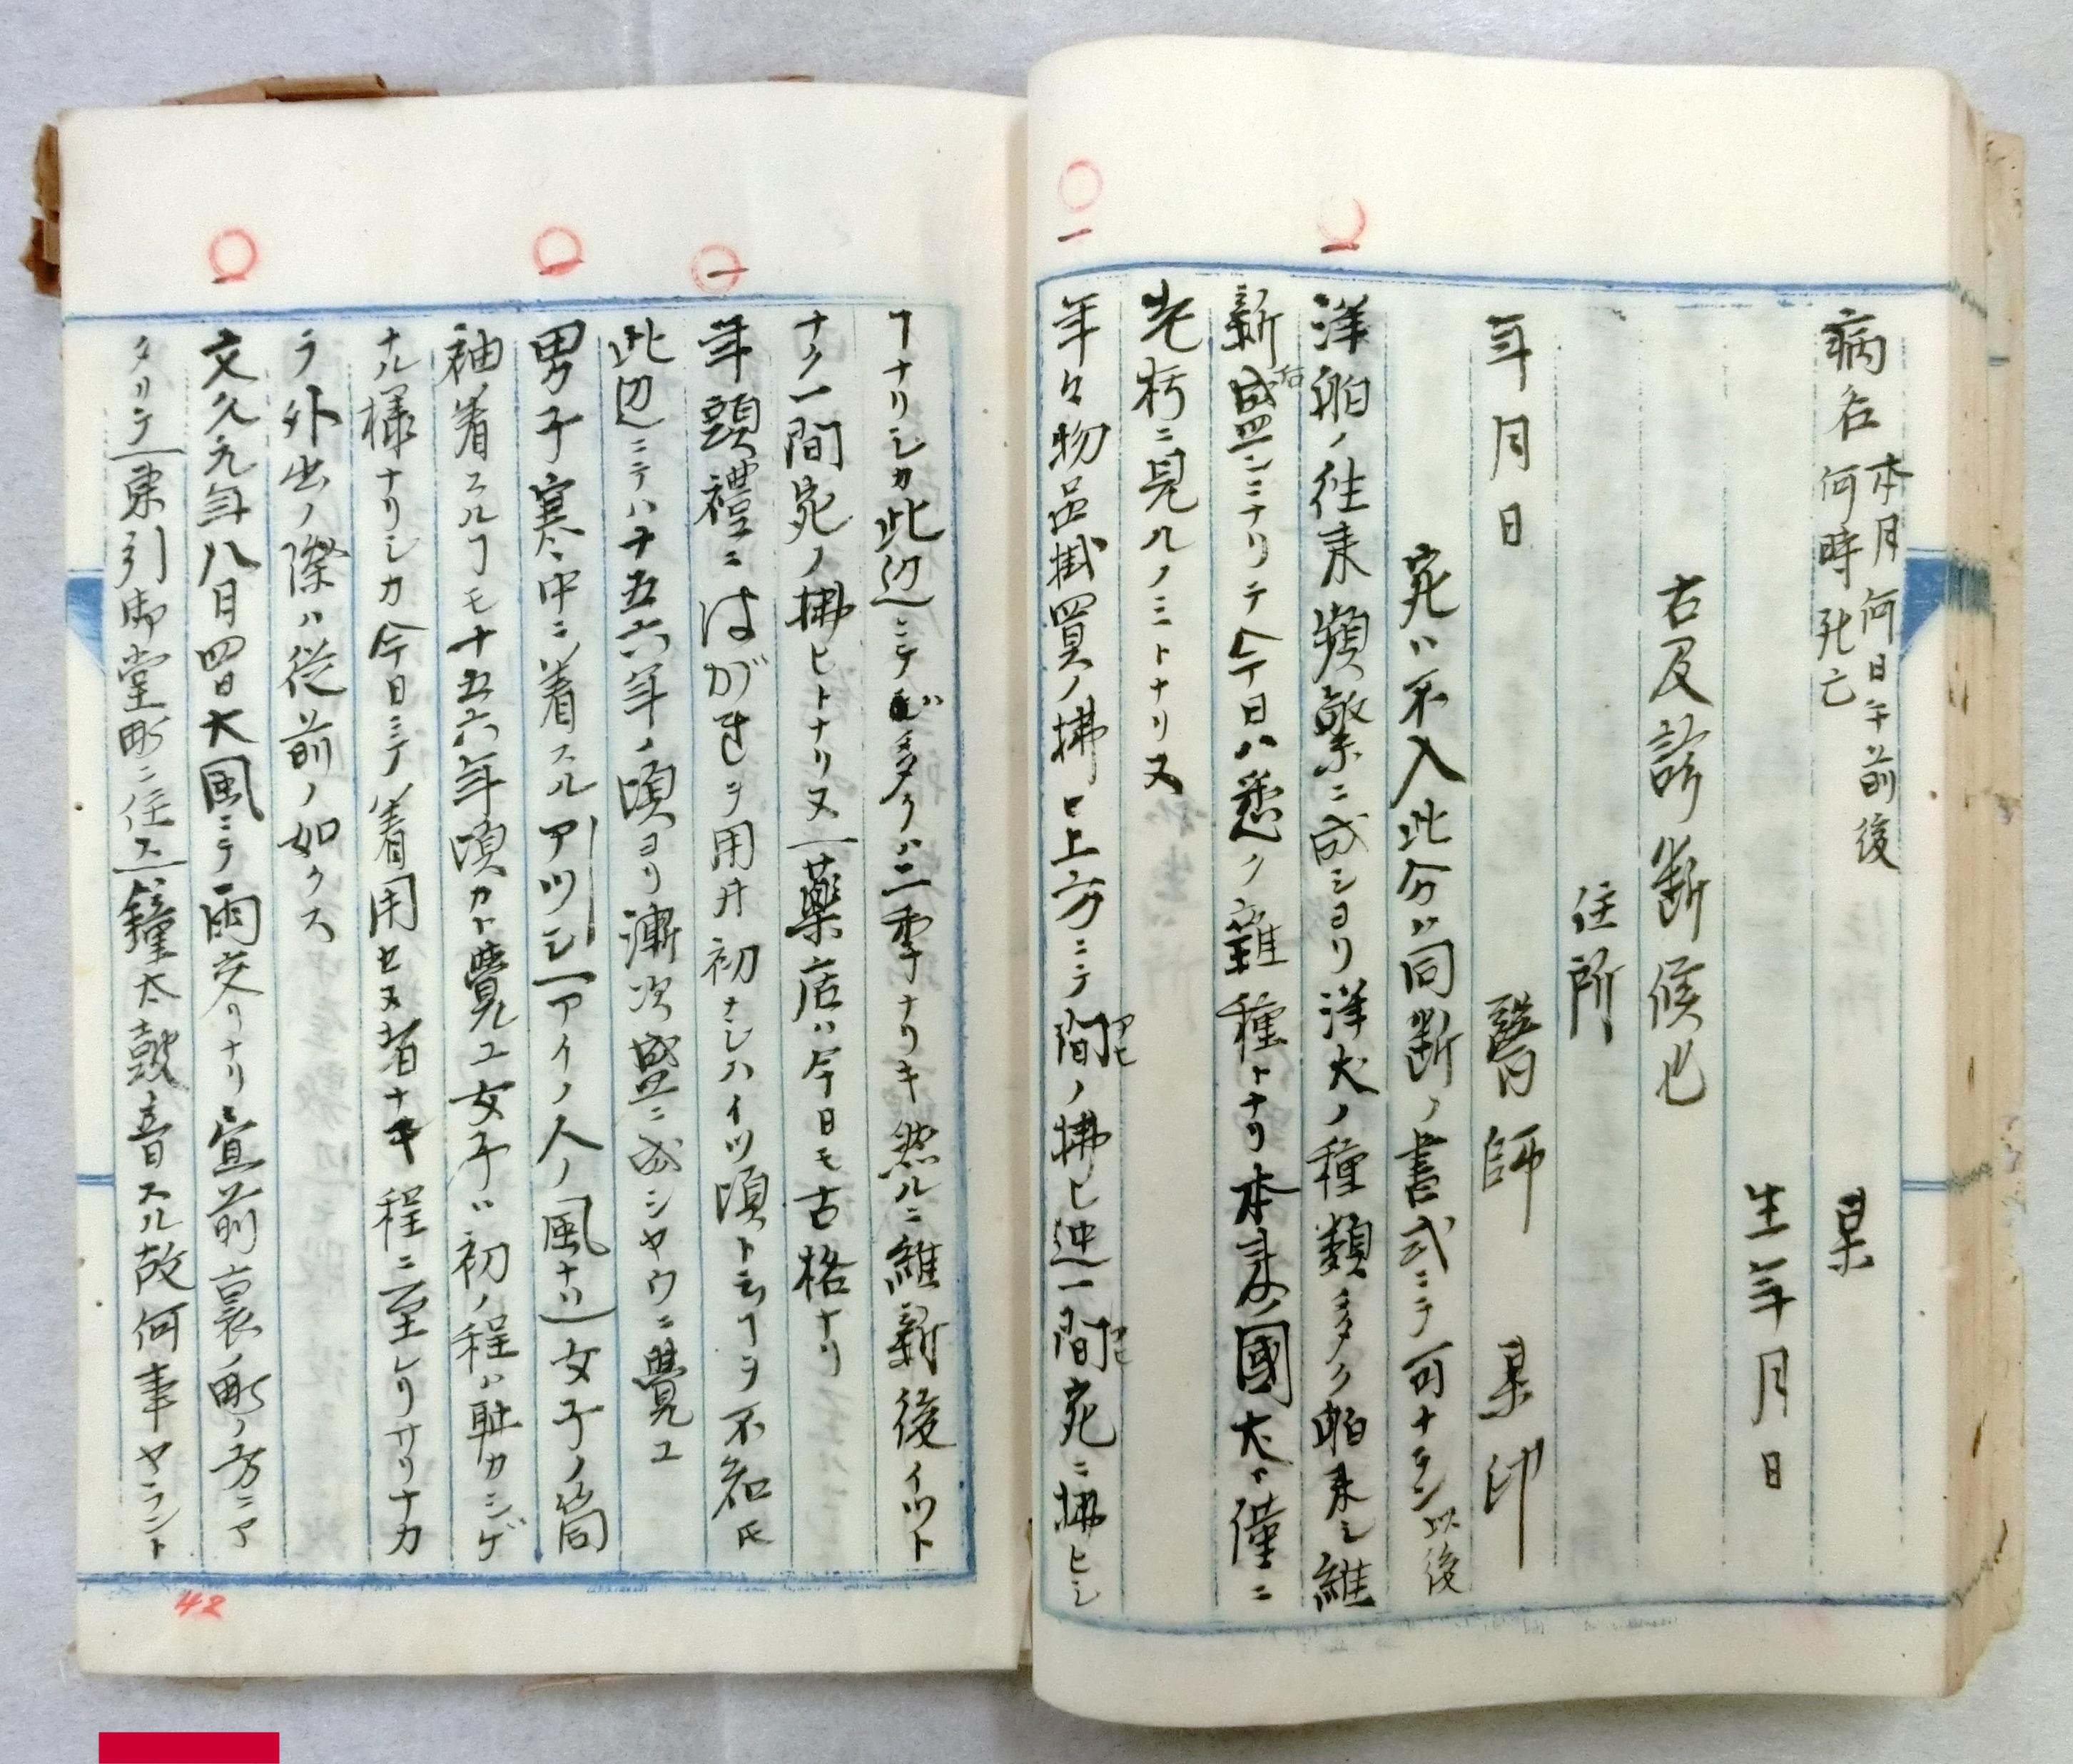 病名 本月何日午前後
何時死亡 某
生年月日
右及診断候也
住所
年月日 醫師 某印
宛ハ不入此分ハ同断ノ書式ニテ可ナラン以後
洋舶ノ往来頻繁ニ成シヨリ洋犬ノ種類多ク舶来シ維
新盛ンニナリテ今日ハ悉ク雜種トナリ本来ノ國犬ト僅ニ
老朽ニ見ルノミトナリ又
年々物品掛買ノ拂ヒ上方ニテ間ノ拂ヒ迚一間宛ニ拂ヒシ
アヒ
アヒ
ヿナリシカ此辺ニテ多クハ二季ナリキ然ルニ維新後イツト
ナク一間宛ノ拂ヒトナリ又薬店ハ今日モ古格ナリ
年頭禮ニはがきヲ用井初ナシハイツ頃ト云フヿヲ不知氏
此辺ニテハ十五六年ノ頃ヨリ漸次盛ニ成シヤウニ覺ユ
男子寒中ニ着スルアツシ アイノ人ノ風ナリ 女子ノ筒
袖ノ着スルヿモ十五六年頃カト覺ユ女子ハ初ノ程ハ耻カシゲ
ナル様ナリシカ今日ニテ着用セヌ者ナキ程ニ至レリサリナカ
ラ外出ノ際ハ従前ノ如クス
文久元年八月四日大風ニテ雨交リナリ宣前裏ノ町ノ方ニア
タリテ 東引御堂町ニ住ス 鐘太鼓音スル故何事ヤラント
42